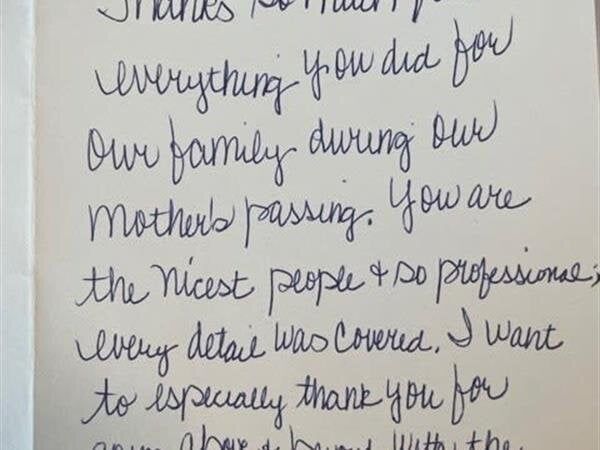 Thanks so much for
everything you did for
our family during our
Mother's passing. You are
the nicest people + so professional;
every detail was covered. I want
to especially thank you for
above & beyond with the